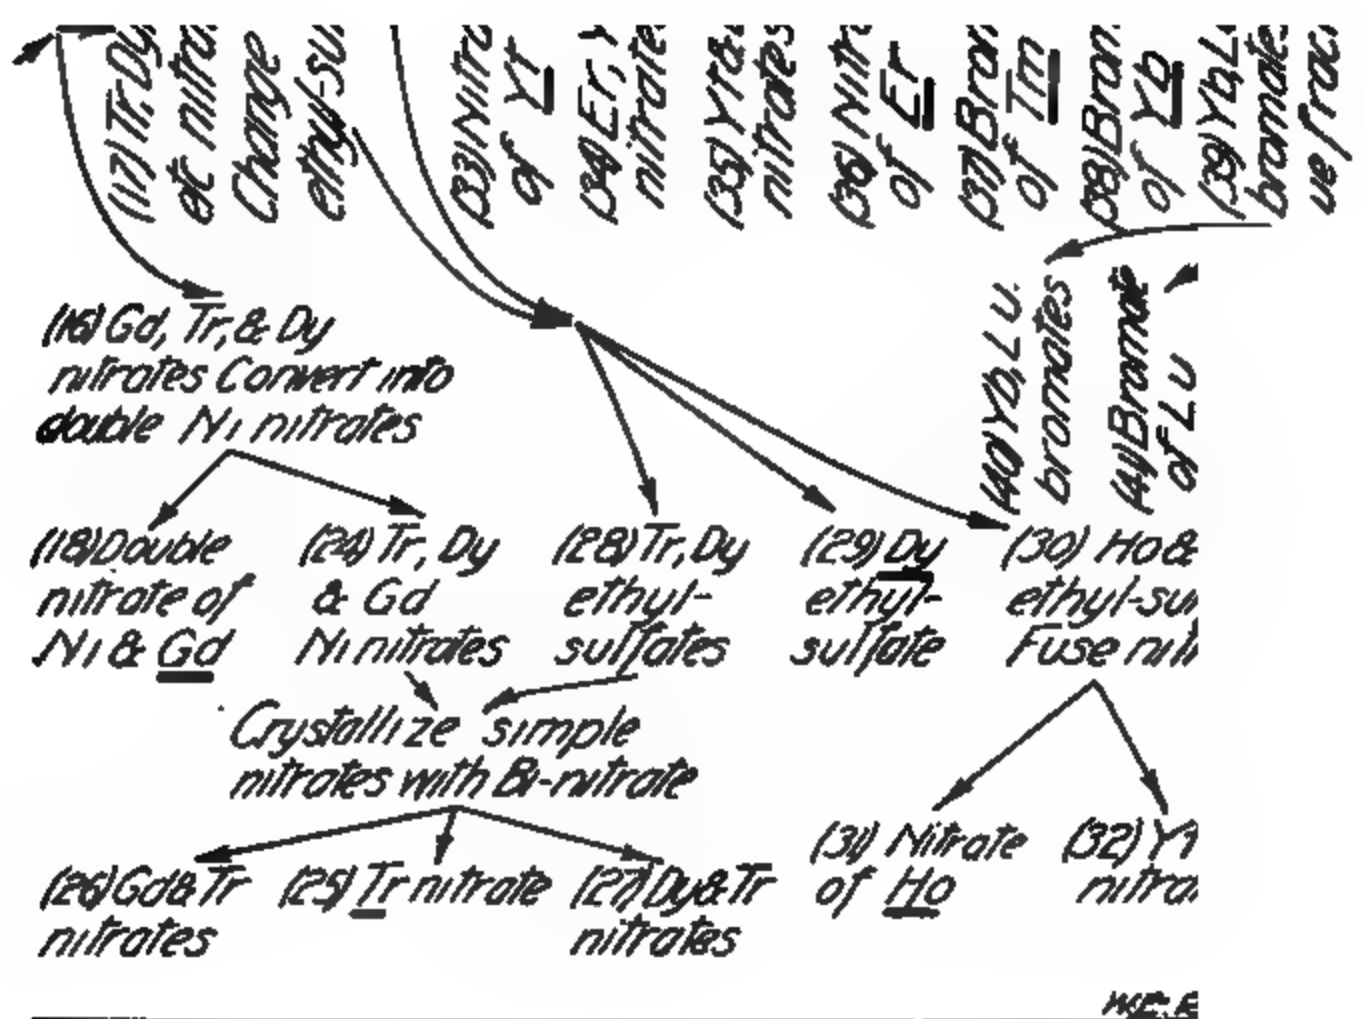 (17) Tr, Dy,
et nitra
Change
ethyl-sul
(33) Nitra
of Yt
(34) Er, Y
nitrate
(35) Yt &
nitrates
(36) Nitra
of Er
(37) Brom
of Tm
(38) Brom
of Yb
(39) Yb, L
bromates
ue frac
(40) Yb, Lu.
bromates
(41) Bromate
of Lu
(16) Gd, Tr, & Dy
nitrates Convert into
double Ni nitrates
(18) Double
nitrate of
Ni & Gd
(24) Tr, Dy
& Gd
Ni nitrates
(28) Tr, Dy
ethyl-
sulfates
(29) Dy
ethyl-
sulfate
(30) Ho &
ethyl-sul
Fuse nit
Crystallize simple
nitrates with Bi-nitrate
(26) Gd & Tr
nitrates
(25) Tr nitrate
(27) Dy & Tr
nitrates
(31) Nitrate
of Ho
(32) Yt
nitra